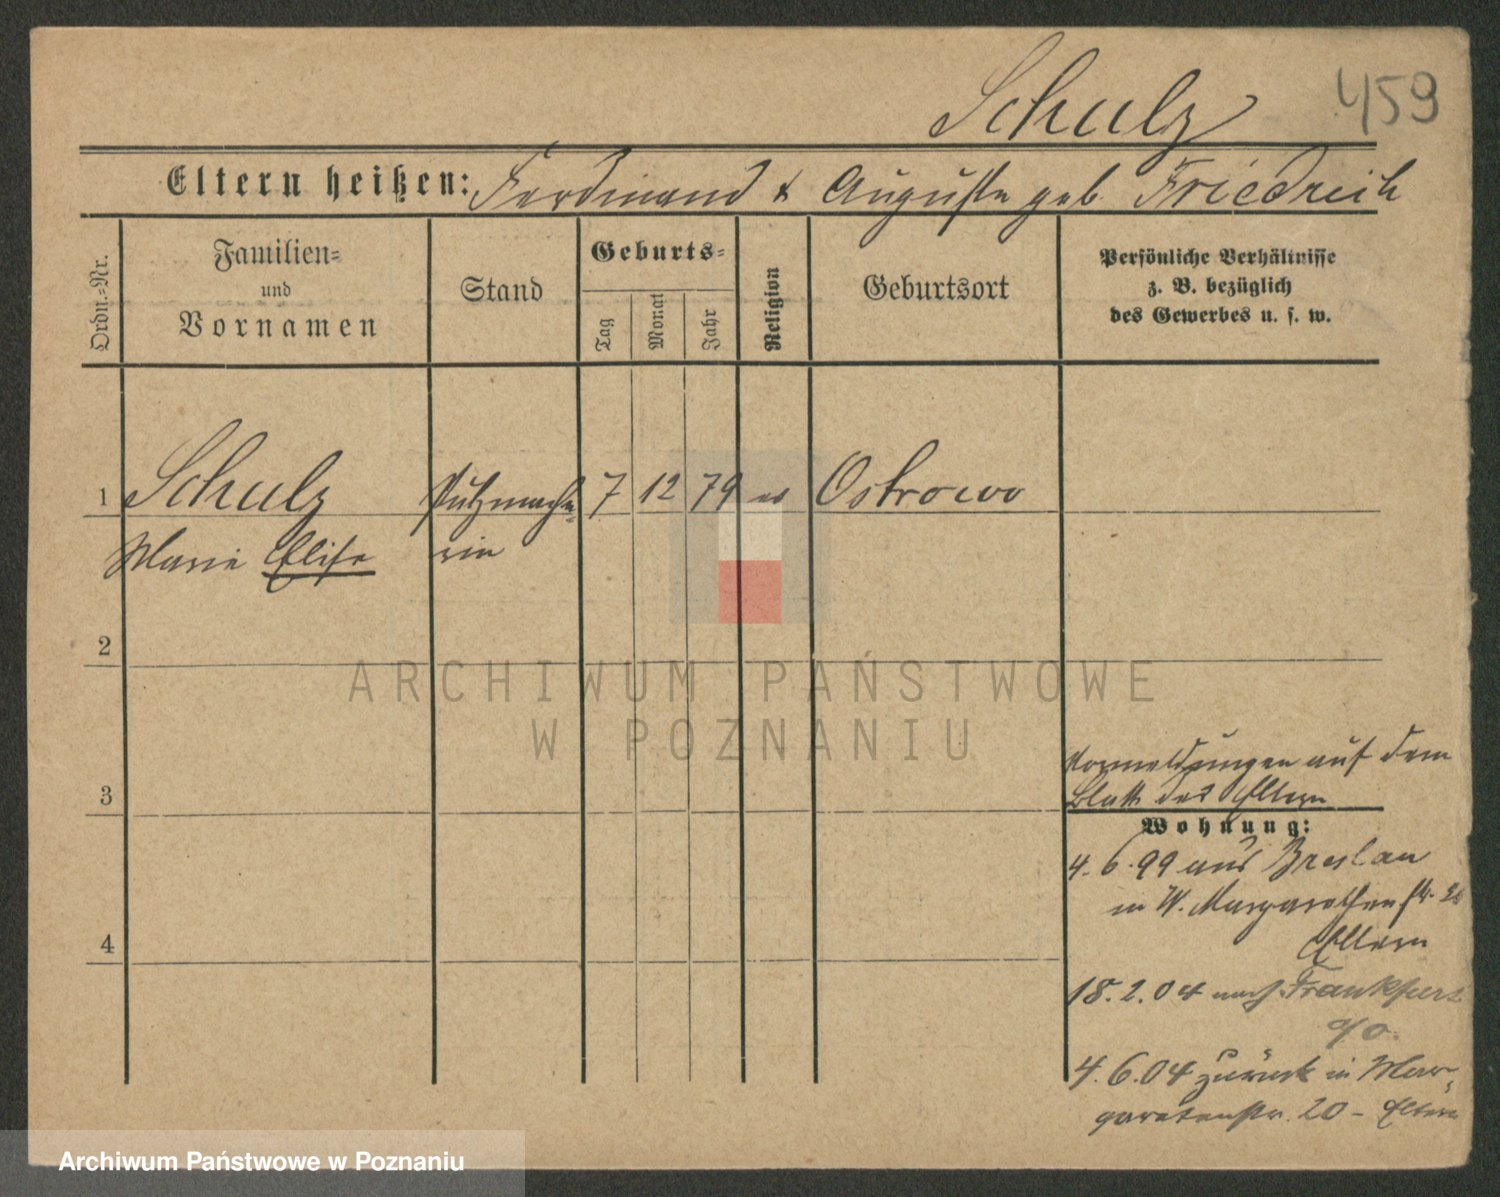 Schulz
459
Eltern heißen: Ferdinand & Auguste geb. Friedrich
Ordn.-Nr.
Familien-
und
Vornamen
Stand
Geburts-
Tag
Monat
Jahr
Religion
Geburtsort
Persönliche Verhältnisse
z. B. bezüglich
des Gewerbes u. s. w.
1 Schulz Putzmache- 7 12 79 ev Ostrowo
Marie Elise rin
2
3
4
Vormeldungen auf dem
Blatt der Eltern
Wohnung:
4.6.99 aus Breslau
in W. Margarethenstr. 20
Eltern
18.2.04 nach Frankfurt
a/o.
4.6.04 zurück in Mar-
garetenstr. 20 - Eltern
ARCHIWUM PAŃSTWOWE
W POZNANIU
Archiwum Państwowe w Poznaniu